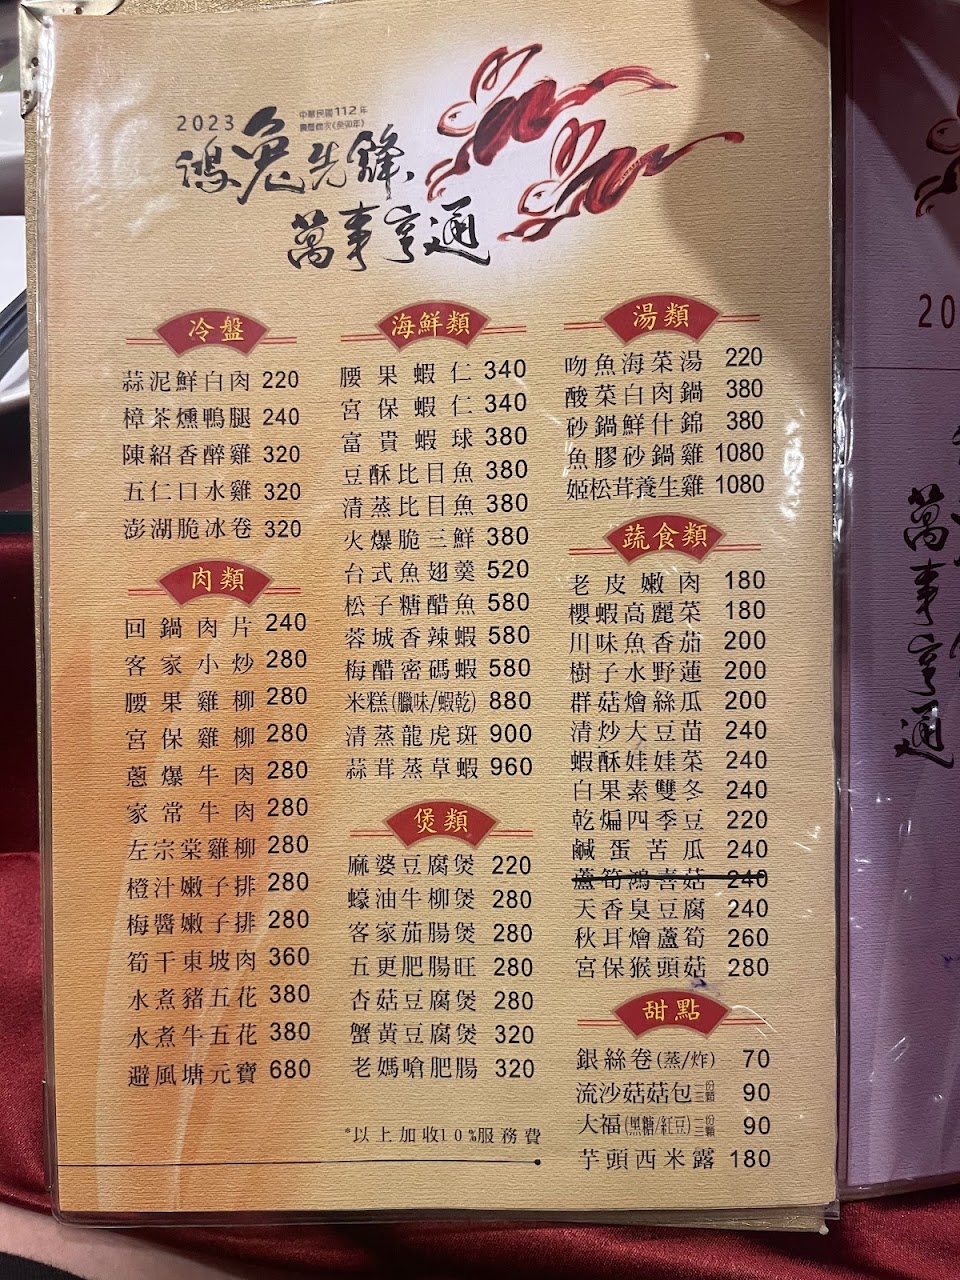 2023
中華民國112年
農曆歲次《癸卯年》
鴻兔先鋒,
萬事亨通
冷盤
蒜泥鮮白肉 220
樟茶燻鴨腿 240
陳紹香醉雞 320
五仁口水雞 320
澎湖脆冰卷 320
肉類
回鍋肉片 240
客家小炒 280
腰果雞柳 280
宮保雞柳 280
蔥爆牛肉 280
家常牛肉 280
左宗棠雞柳 280
橙汁嫩子排 280
梅醬嫩子排 280
筍干東坡肉 360
水煮豬五花 380
水煮牛五花 380
避風塘元寶 680
海鮮類
腰果蝦仁 340
宮保蝦仁 340
富貴蝦球 380
豆酥比目魚 380
清蒸比目魚 380
火爆脆三鮮 380
台式魚翅羹 520
松子糖醋魚 580
蓉城香辣蝦 580
梅醋密碼蝦 580
米糕(臘味/蝦乾) 880
清蒸龍虎斑 900
蒜茸蒸草蝦 960
煲類
麻婆豆腐煲 220
蠔油牛柳煲 280
客家茄腸煲 280
五更肥腸旺 280
杏菇豆腐煲 280
蟹黃豆腐煲 320
老媽嗆肥腸 320
*以上加收10%服務費
湯類
吻魚海菜湯 220
酸菜白肉鍋 380
砂鍋鮮什錦 380
魚膠砂鍋雞 1080
姬松茸養生雞 1080
蔬食類
老皮嫩肉 180
櫻蝦高麗菜 180
川味魚香茄 200
樹子水野蓮 200
群菇燴絲瓜 200
清炒大豆苗 240
蝦酥娃娃菜 240
白果素雙冬 240
乾煸四季豆 220
鹹蛋苦瓜 240
蘆筍鴻喜菇 240
天香臭豆腐 240
秋耳燴蘆筍 260
宮保猴頭菇 280
甜點
銀絲卷(蒸/炸) 70
流沙菇菇包一份三顆 90
大福(黑糖/紅豆)一份三顆 90
芋頭西米露 180
20
萬事亨通